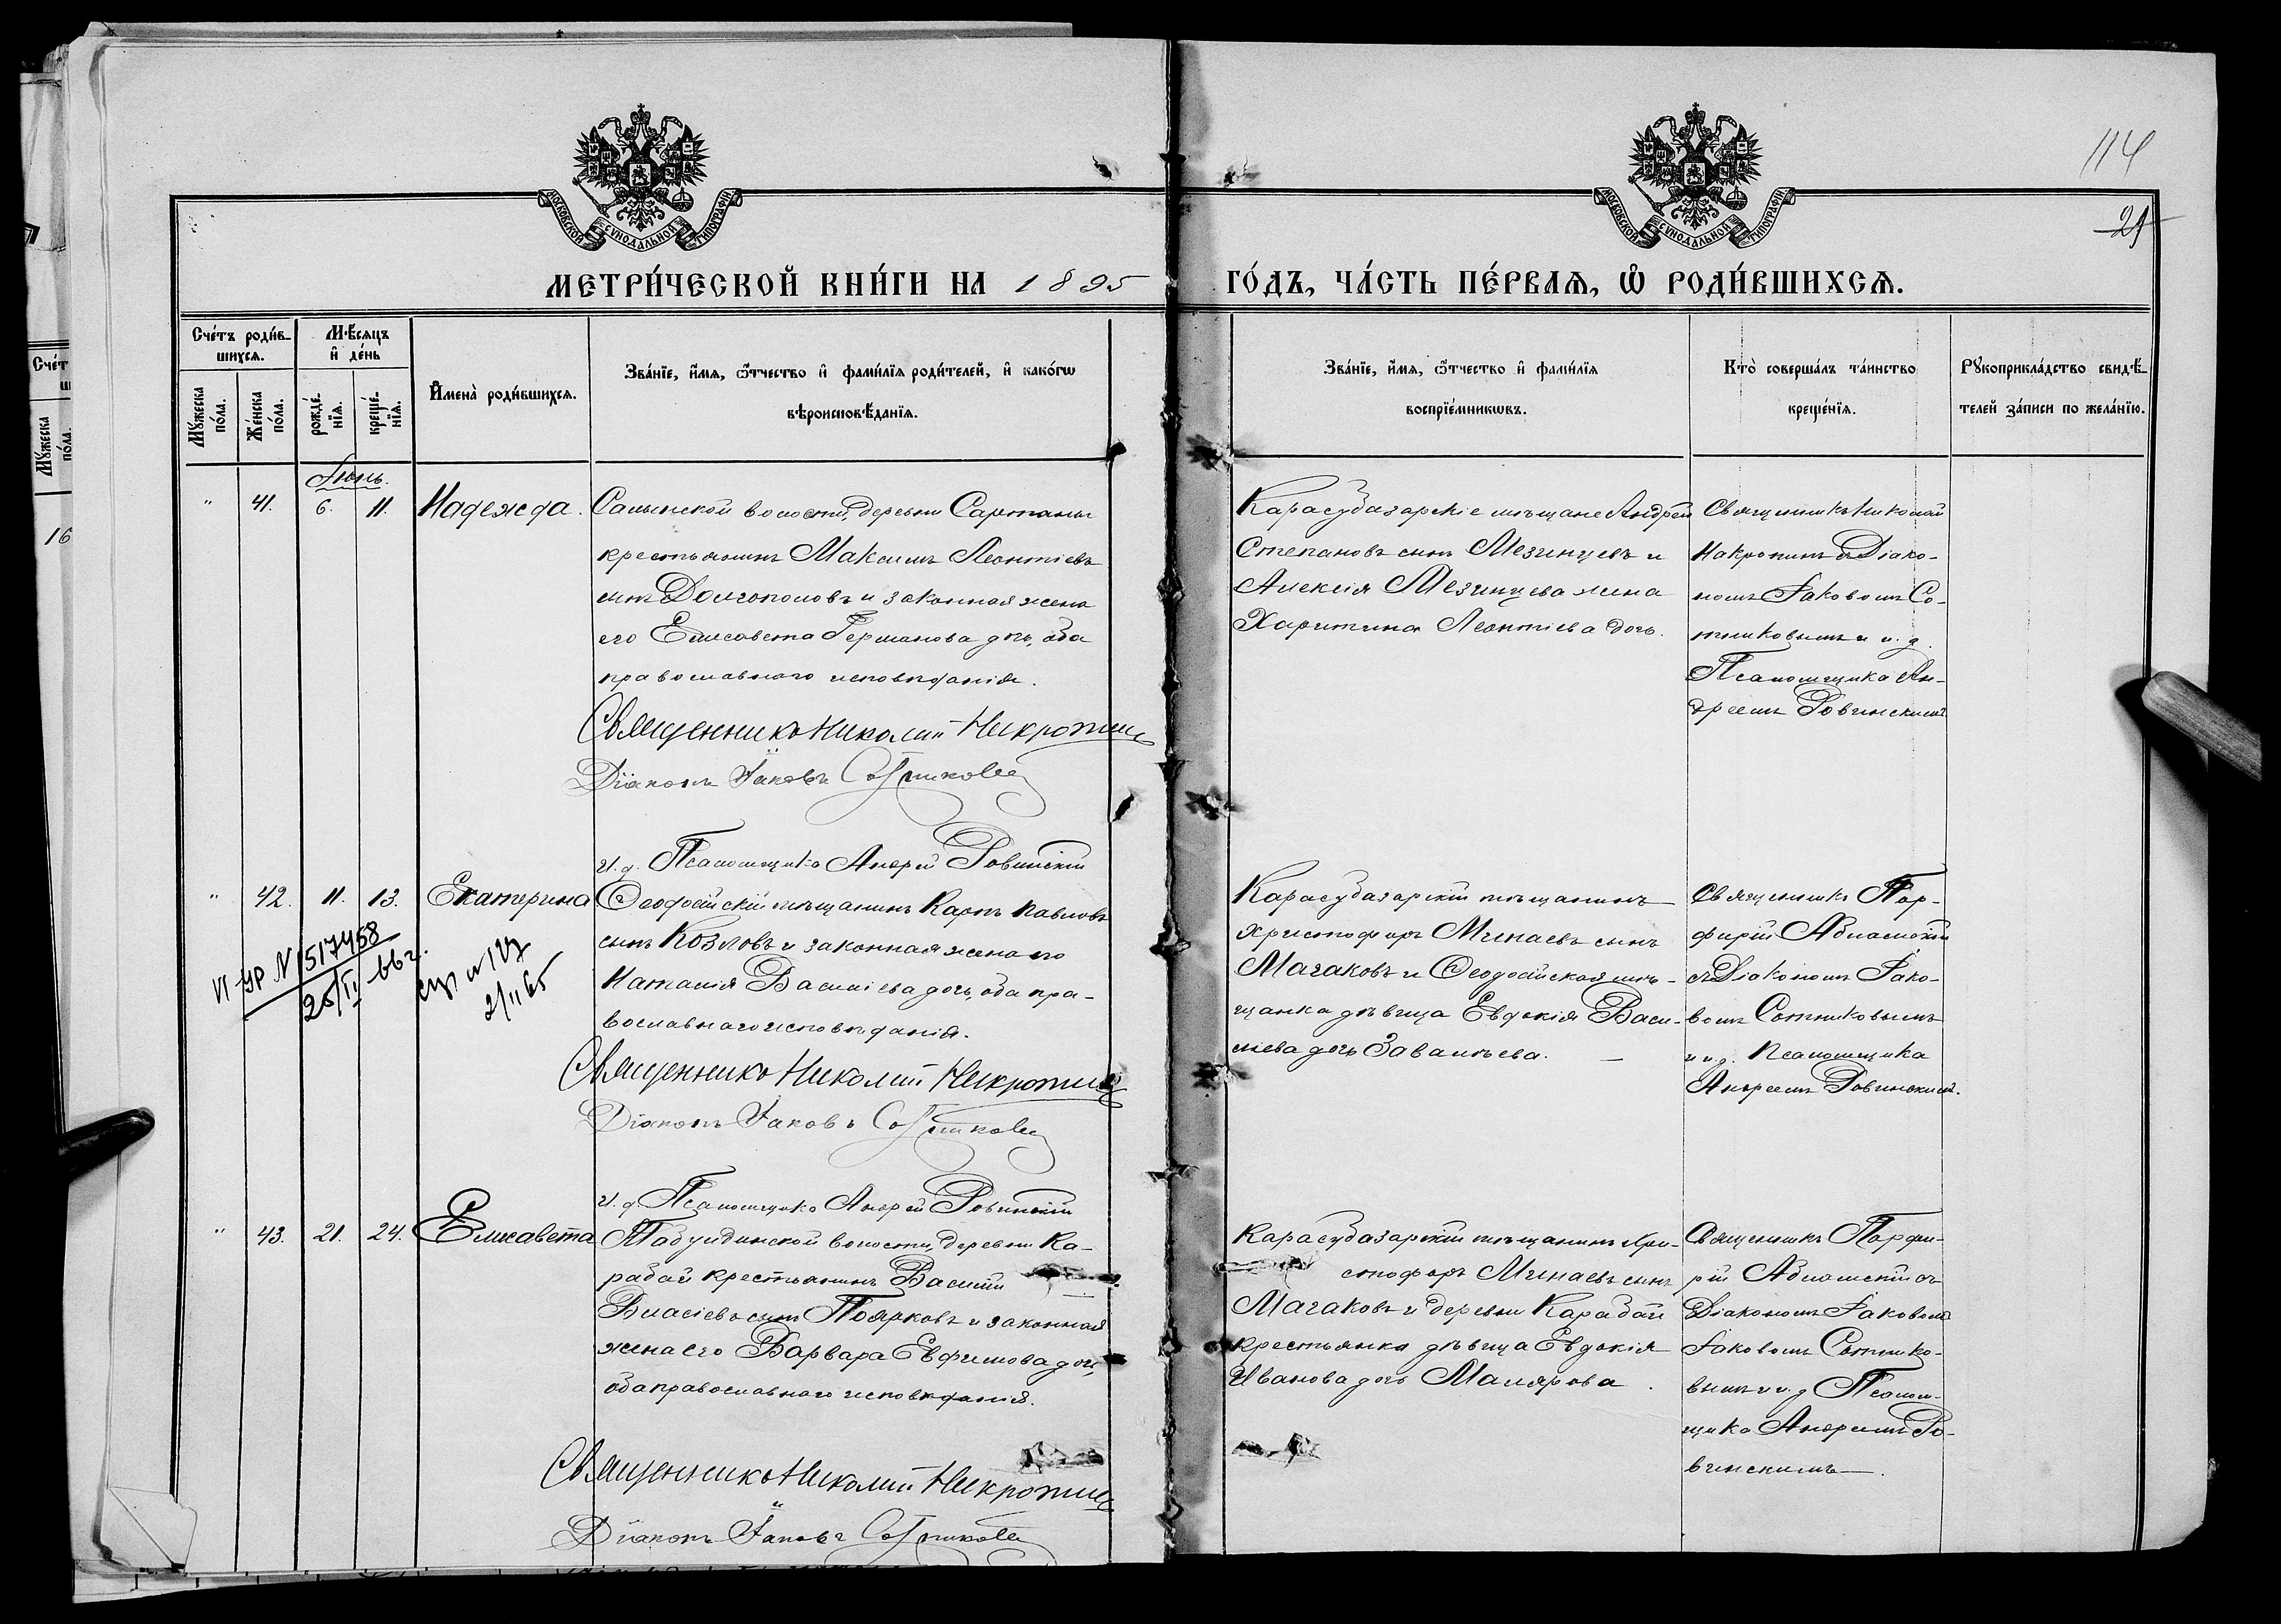 114
25
МОСКОВСКОЙ СѴНОДАЛЬНОЙ ТИПОГРАФІИ
МОСКОВСКОЙ СѴНОДАЛЬНОЙ ТИПОГРАФІИ
МЕТРИ́ЧЕСКОЙ КНИ́ГИ НА 1895 ГО́ДЪ, ЧА́СТЬ ПЕ́РВАЯ, Ѡ҆ РОДИ́ВШИХСЯ.
Сче́тъ роди́в-
шихся.
Мꙋ́жеска по́ла.
Же́нска по́ла.
Мѣ́сяцъ
и҆ де́нь
рожде́-
нїя.
креще́-
нїя.
И҆мена̀ роди́вшихся.
Зва́нїе, и҆́мя, ѻ҆́тчество и҆ фами́лїя роди́телей, и҆ како́гѡ
вѣроисповѣ́данїя.
Зва́нїе, и҆́мя, ѻ҆́тчество и҆ фами́лїя
воспрїе́мникѡвъ.
Кто̀ соверша́лъ та́инство
креще́нїя.
Рꙋкоприкла́дство свидѣ́-
телей за́писи по жела́нїю.
Счет
Мꙋжеска
пола.
16
Іюнь.
" 41. 6. 11. Надежда.
деревни Сартаны
крестьянинъ Максимъ Леонтіевъ
сынъ Долгополовъ и законная жена
его Елисавета Германова дочь, оба
православнаго исповѣданія.
Священникъ Николай Некропинъ
Діаконъ Іаковъ Сотниковъ
и. д. Псаломщика Андрей Ровинскій
Карасубазарскіе мѣщане Андрей
Степановъ сынъ Мезинцевъ и
Алексія Мезинцева жена
Харитина Леонтіева дочь.
Священникъ Николай
Накропинъ съ Діако-
номъ Іаковомъ Со-
тниковымъ и и. д.
Псаломщика Ан-
дреемъ Ровинскимъ
" 42. 11. 13. Екатерина
Ѳеодосійскій мѣщанинъ Карпъ Павловъ
сынъ Козловъ и законная жена его
Наталія Василіева дочь, оба пра-
вославнаго исповѣданія.
Священникъ Николай Некропинъ
Діаконъ Іаковъ Сотниковъ
и. д. Псаломщика Андрей Ровинскій
VI УР N 517458
66 г.
2/II 65
Карасубазарскій мѣщанинъ
Христофоръ Минаевъ сынъ
Магаковъ и Ѳеодосійская мѣ-
щанка дѣвица Евдокія Васи-
ліева дочь —
Священникъ Пор-
фирій
съ Діакономъ Іако-
вомъ Сотниковымъ
и и. д. Псаломщика
Андреемъ Ровинскимъ.
" 43. 21. 24. Елисавета
волости, деревни Ка-
рабай крестьянинъ Василій
Власіевъ сынъ Поярковъ и законная
жена его Варвара Евфимова дочь,
оба православнаго исповѣданія.
Священникъ Николай Некропинъ
Діаконъ Іаковъ Сотниковъ
Карасубазарскій мѣщанинъ Хри-
стофоръ Минаевъ сынъ
Магаковъ и деревни Карабай
крестьянка дѣвица Евдокія
Иванова дочь Малярова.
Священникъ Порфи-
рій съ
Діакономъ Іаковомъ
Іаковомъ Сотнико-
вымъ и и. д. Псалом-
щика Андреемъ Ро-
винскимъ —.